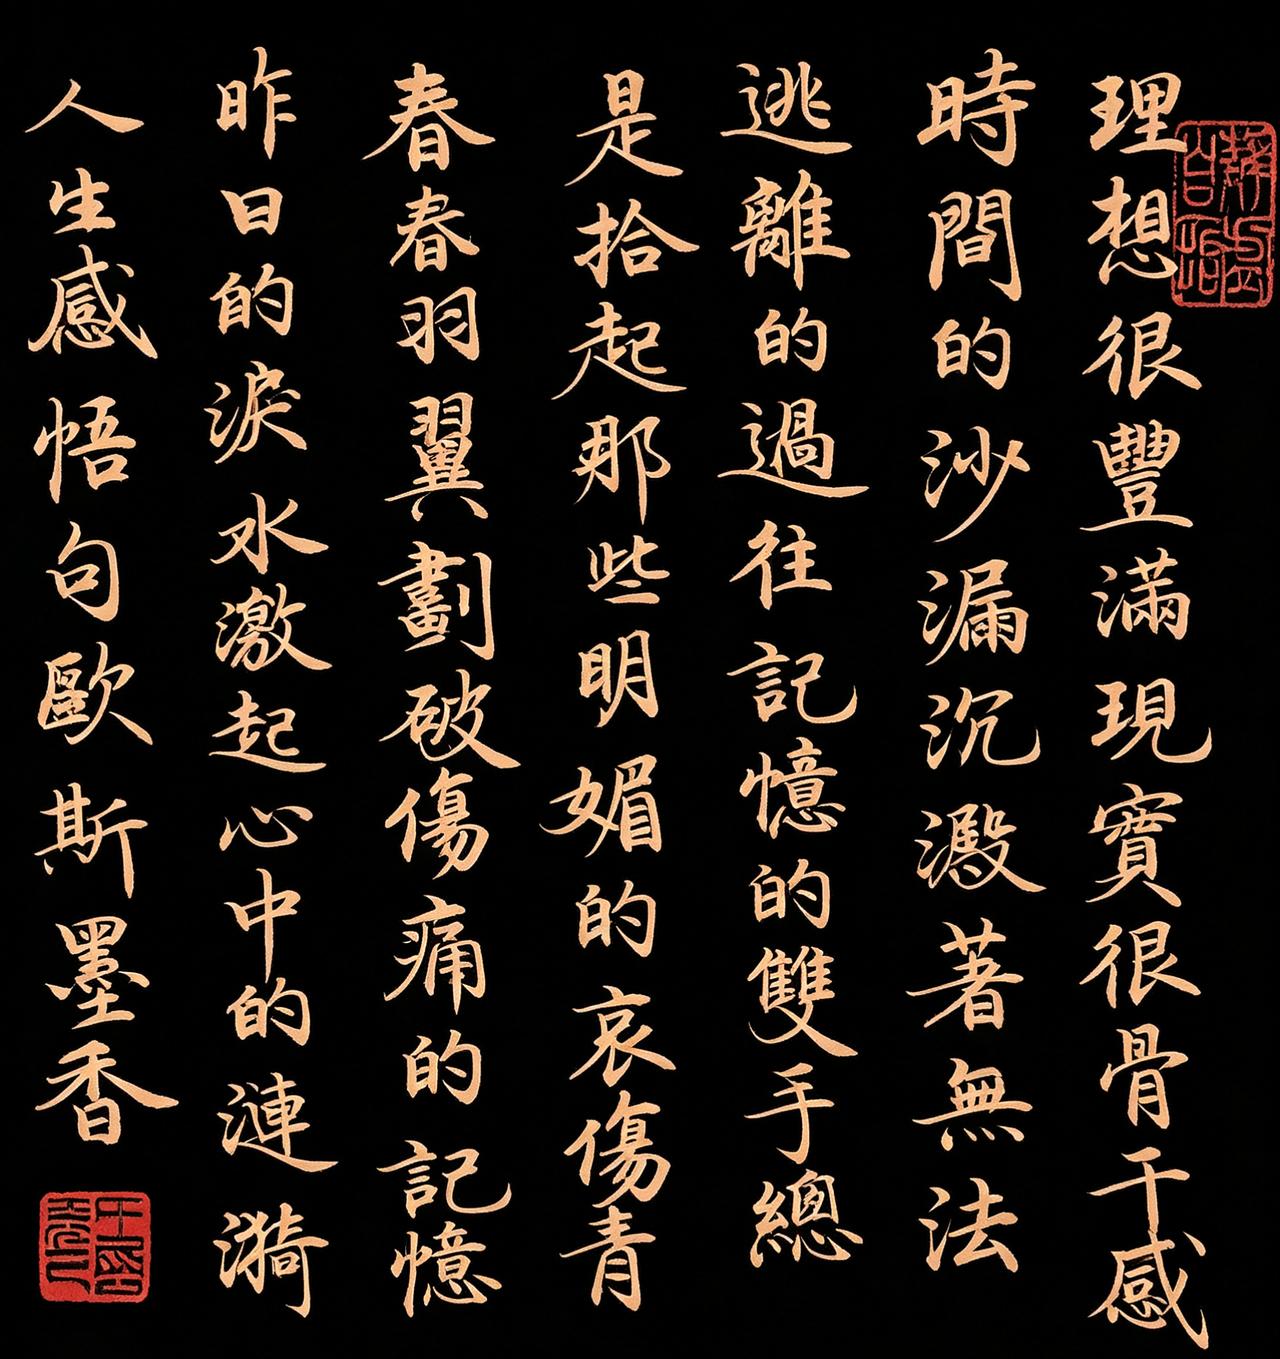 理想很豐滿現實很骨干感
時間的沙漏沉澱著無法
逃離的過往記憶的雙手總
是拾起那些明媚的哀傷青
春春羽翼劃破傷痛的記憶
昨日的淚水激起心中的漣漪
人生感悟句歐斯墨香